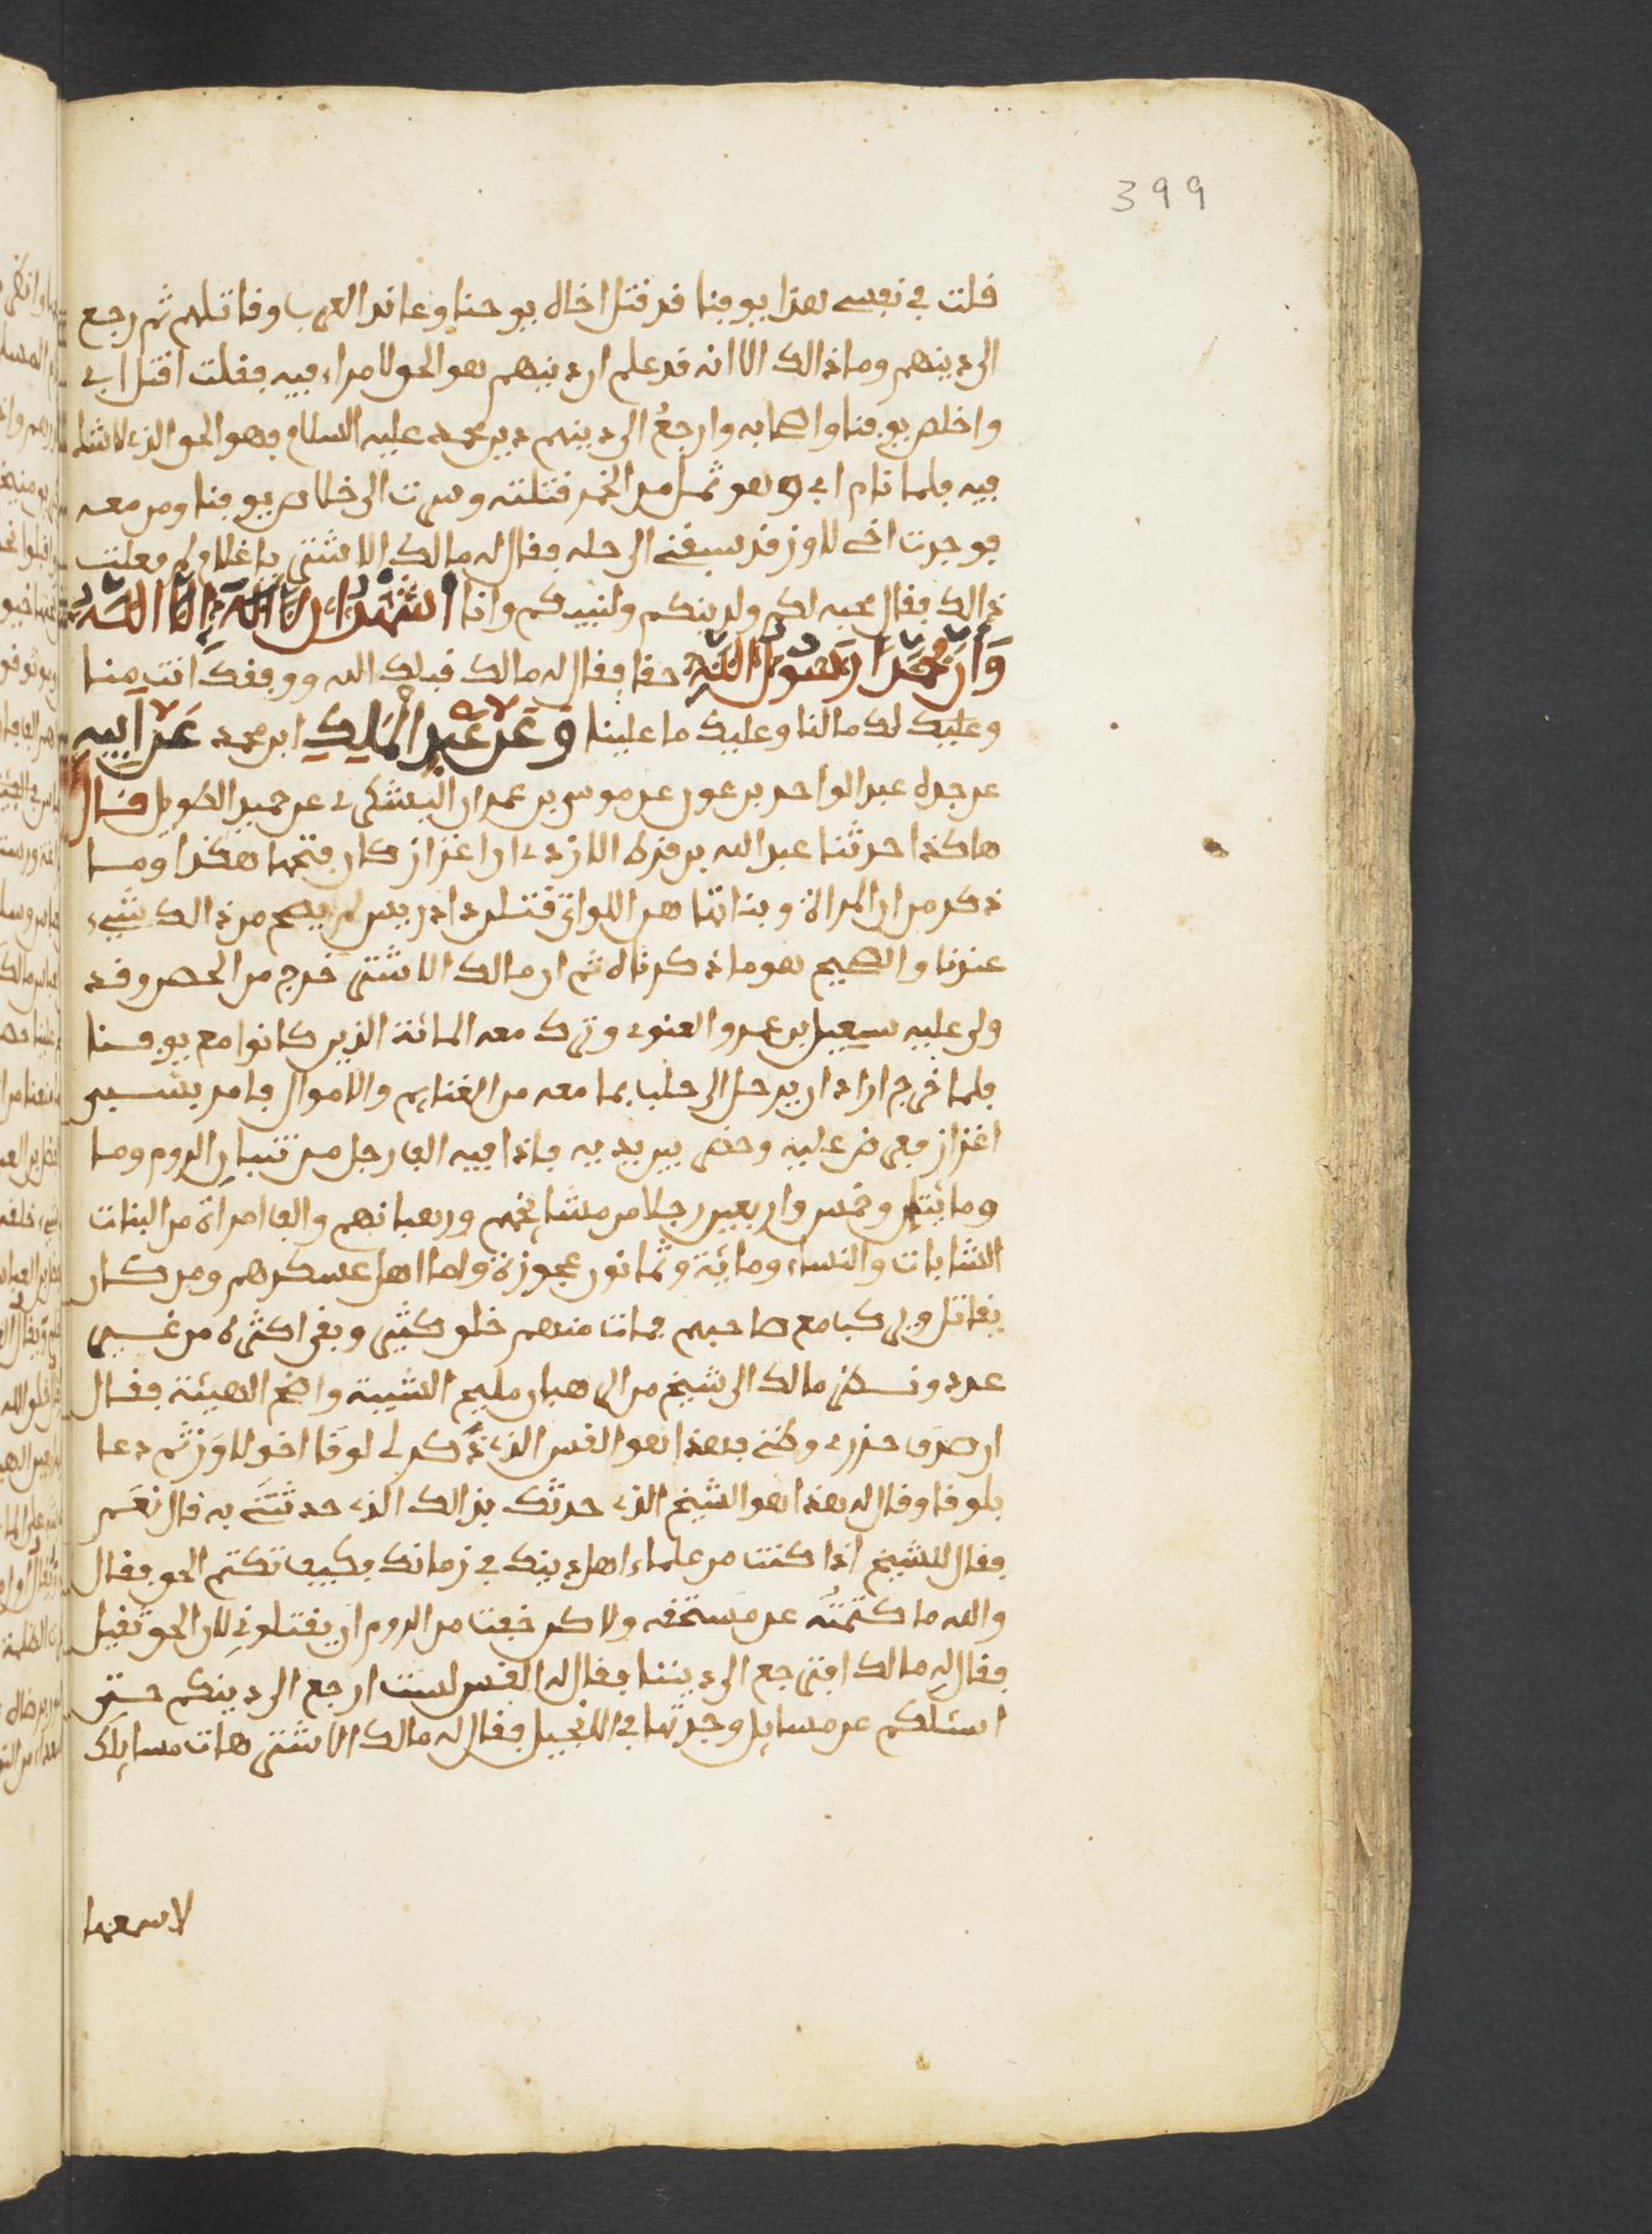 399
قلت في نفسي هذا يوقنا قد قتل اخاه يوحنا وعاند العرب وقاتلهم ثم رجع
الى دينهم وما ذالك الا انه قد علم ان دينهم هو الحق لا مراء فيه فقلت اقتل ابي
واخلص يوقنا واصحابه وارجع الى دينهم دين محمد عليه السلام فهو الحق الذي لا شك
فيه فلما نام ابي وهو ثمل من الخمر قتلته وسرت الى خلاص يوقنا ومن معه
فوجدت اخي لاوز قد سبقني الى حله فقال له مالك الاشتر يا غلام لم فعلت
ذالك فقال محبة لكم ولدينكم ولنبيكم وانا اشهد ان لا اله الا الله
وان محمدا رسول الله حقا فقال له مالك قبلك الله ووفقك انت منا
وعليك لك ما لنا وعليك ما علينا وعن عبد الملك ابن محمد عن ابيه
عن جده عبد الواحد بن عون عن موسى بن عمران اليشكري عن حميد الطويل قال
هاكذا حدثنا عبد الله بن قرة الازدي ان اعزاز كان فتحها هكذا وما
ذكر من ان المراة وبناتها هن اللواتي قتلن دادريس لم يصح من ذالك شيء
عندنا والصحيح هو ما ذكرناه ثم ان مالك الاشتر خرج من الحصن وقد
ولى عليه سعيد بن عمرو الغنوي وترك معه المائة الذين كانوا مع يوقنا
فلما خرج اراد ان يرحل الى حلب بما معه من الغنايم والاموال فامر بسبي
اعزاز فعرض عليه وحضر بين يديه فاذا فيه الف رجل من شبان الروم وما
ومايتين وخمس واربعين رجلا من مشايخهم ورهبانهم والف امراة من البنات
الشابات والنساء ومائية وثمانون عجوزة واما اهل عسكرهم ومن كان
يقاتل ويركب مع صاحبهم فمات منهم خلق كثير وبقي اكثره من غير
عدد ونظر مالك الى شيخ من الرهبان مليح الشيبة واضح الهيئة فقال
ان صدق حذري وظني فهذا هو القس الذي ذكر لي لوقا اخو لاوز ثم دعا
بلوقا وقال له هذا هو الشيخ الذي حدثك بذالك الذي حدثتني به قال نعم
فقال للشيخ اذا كنت من علماء اهل دينك في زمانك فكيف تكتم الحق فقال
والله ما كتمته عن مستحقه ولاكن خفت من الروم ان يقتلوني لان الحق ثقيل
فقال له مالك افترجع الى ديننا فقال له القس لست ارجع الى دينكم حتى
اسئلكم عن مسايل وجدتها في الانجيل فقال له مالك الاشتر هات مسايلك
لاسمعها